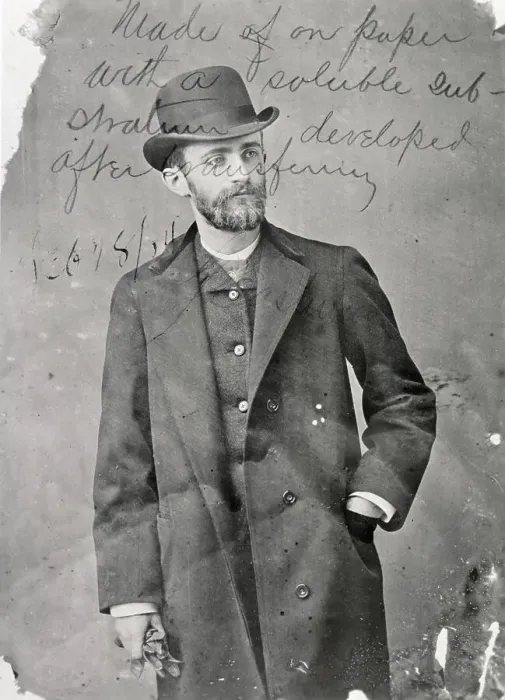 Made of on paper
with a soluble sub-
stratum developed
after transferring